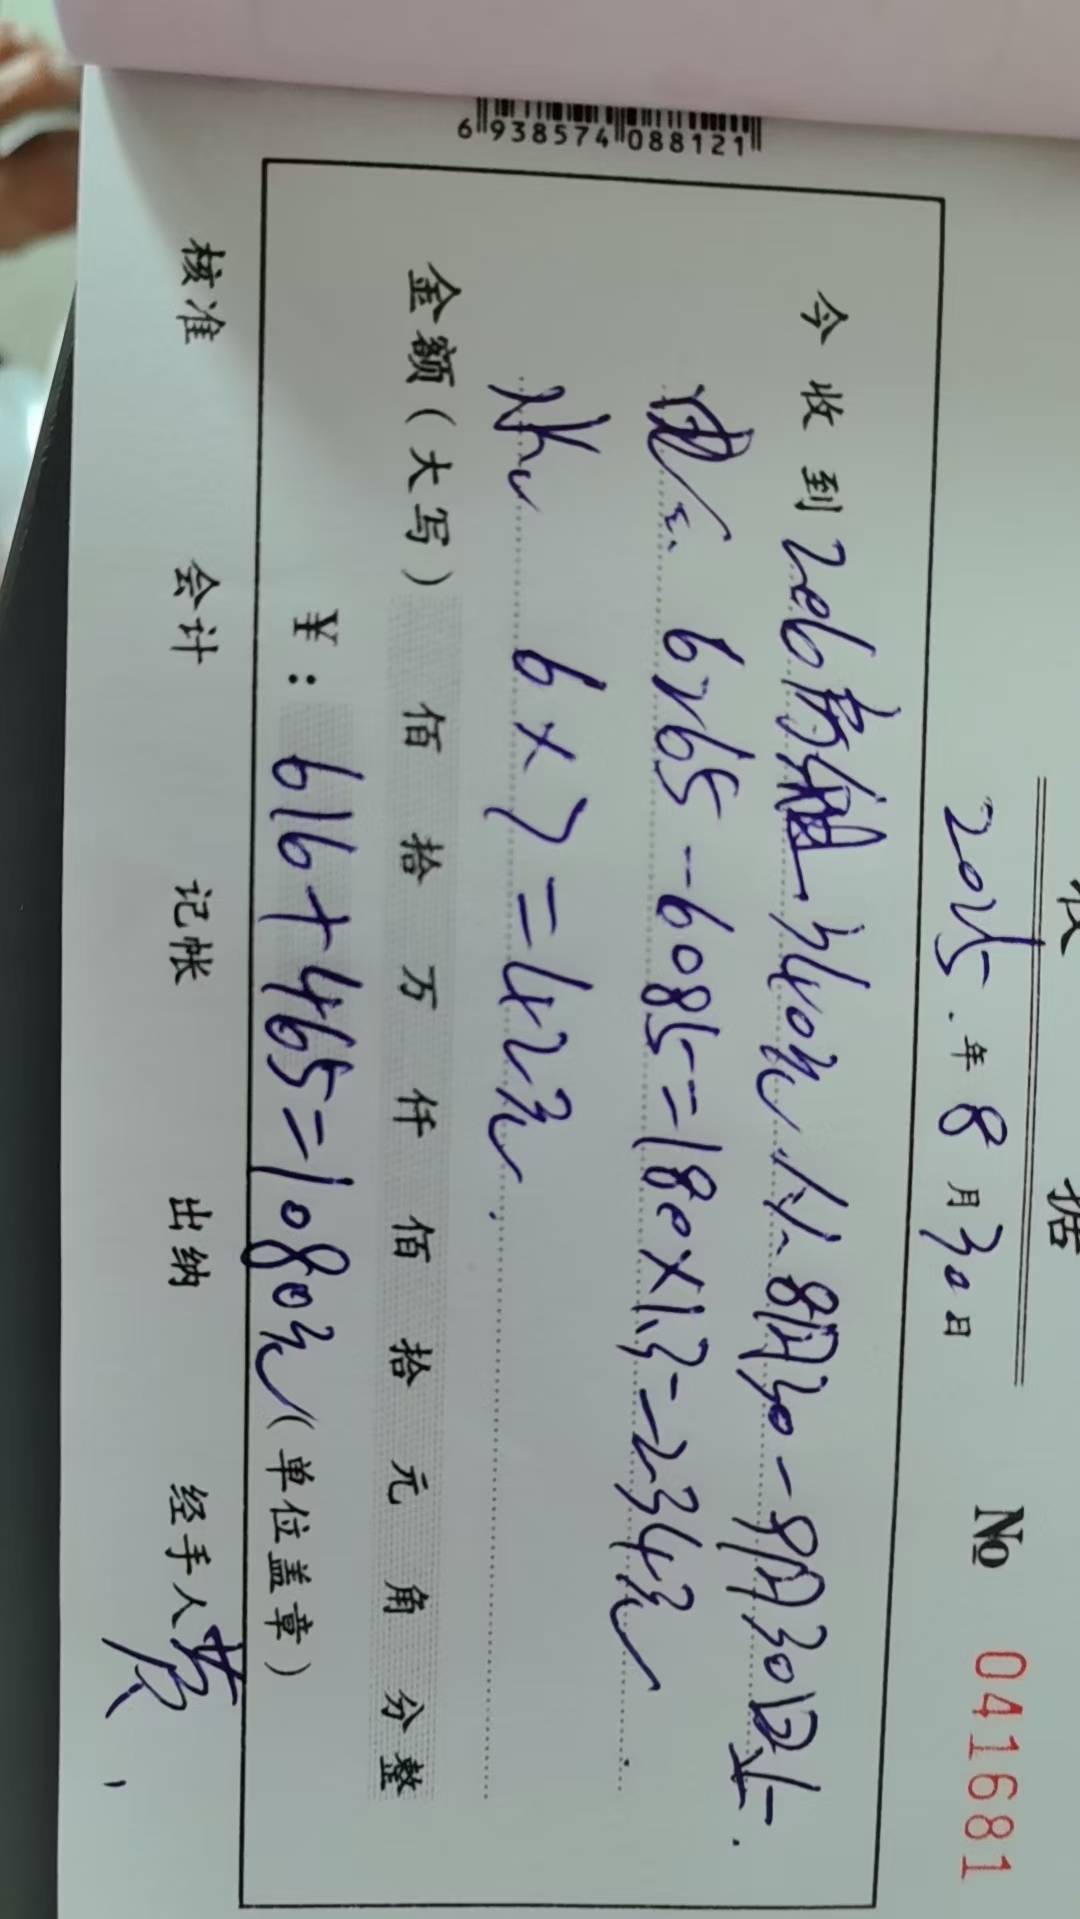 收 据
2025年8月30日 № 041681
今收到206房租340元从8月30-9月30日止.
电: 6265-6085=180×1.3=234元
水 6×7=42元.
金额(大写) 佰 拾 万 仟 佰 拾 元 角 分整
¥: 616+465=1080元(单位盖章)
核准 会计 记帐 出纳 经手人黄
6 938574 088121